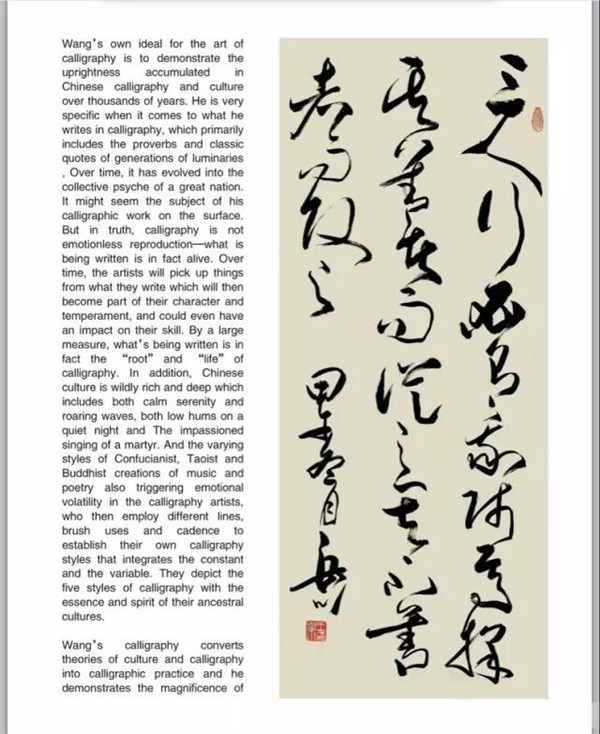 Wang's own ideal for the art of
calligraphy is to demonstrate the
uprightness accumulated in
Chinese calligraphy and culture
over thousands of years. He is very
specific when it comes to what he
writes in calligraphy, which primarily
includes the proverbs and classic
quotes of generations of luminaries
, Over time, it has evolved into the
collective psyche of a great nation.
It might seem the subject of his
calligraphic work on the surface.
But in truth, calligraphy is not
emotionless reproduction—what is
being written is in fact alive. Over
time, the artists will pick up things
from what they write which will then
become part of their character and
temperament, and could even have
an impact on their skill. By a large
measure, what's being written is in
fact the “root” and “life” of
calligraphy. In addition, Chinese
culture is wildly rich and deep which
includes both calm serenity and
roaring waves, both low hums on a
quiet night and The impassioned
singing of a martyr. And the varying
styles of Confucianist, Taoist and
Buddhist creations of music and
poetry also triggering emotional
volatility in the calligraphy artists,
who then employ different lines,
brush uses and cadence to
establish their own calligraphy
styles that integrates the constant
and the variable. They depict the
five styles of calligraphy with the
essence and spirit of their ancestral
cultures.
Wang's calligraphy converts
theories of culture and calligraphy
into calligraphic practice and he
demonstrates the magnificence of
三人行必有我師焉擇
其善者而從之其不善
者而改之 甲午